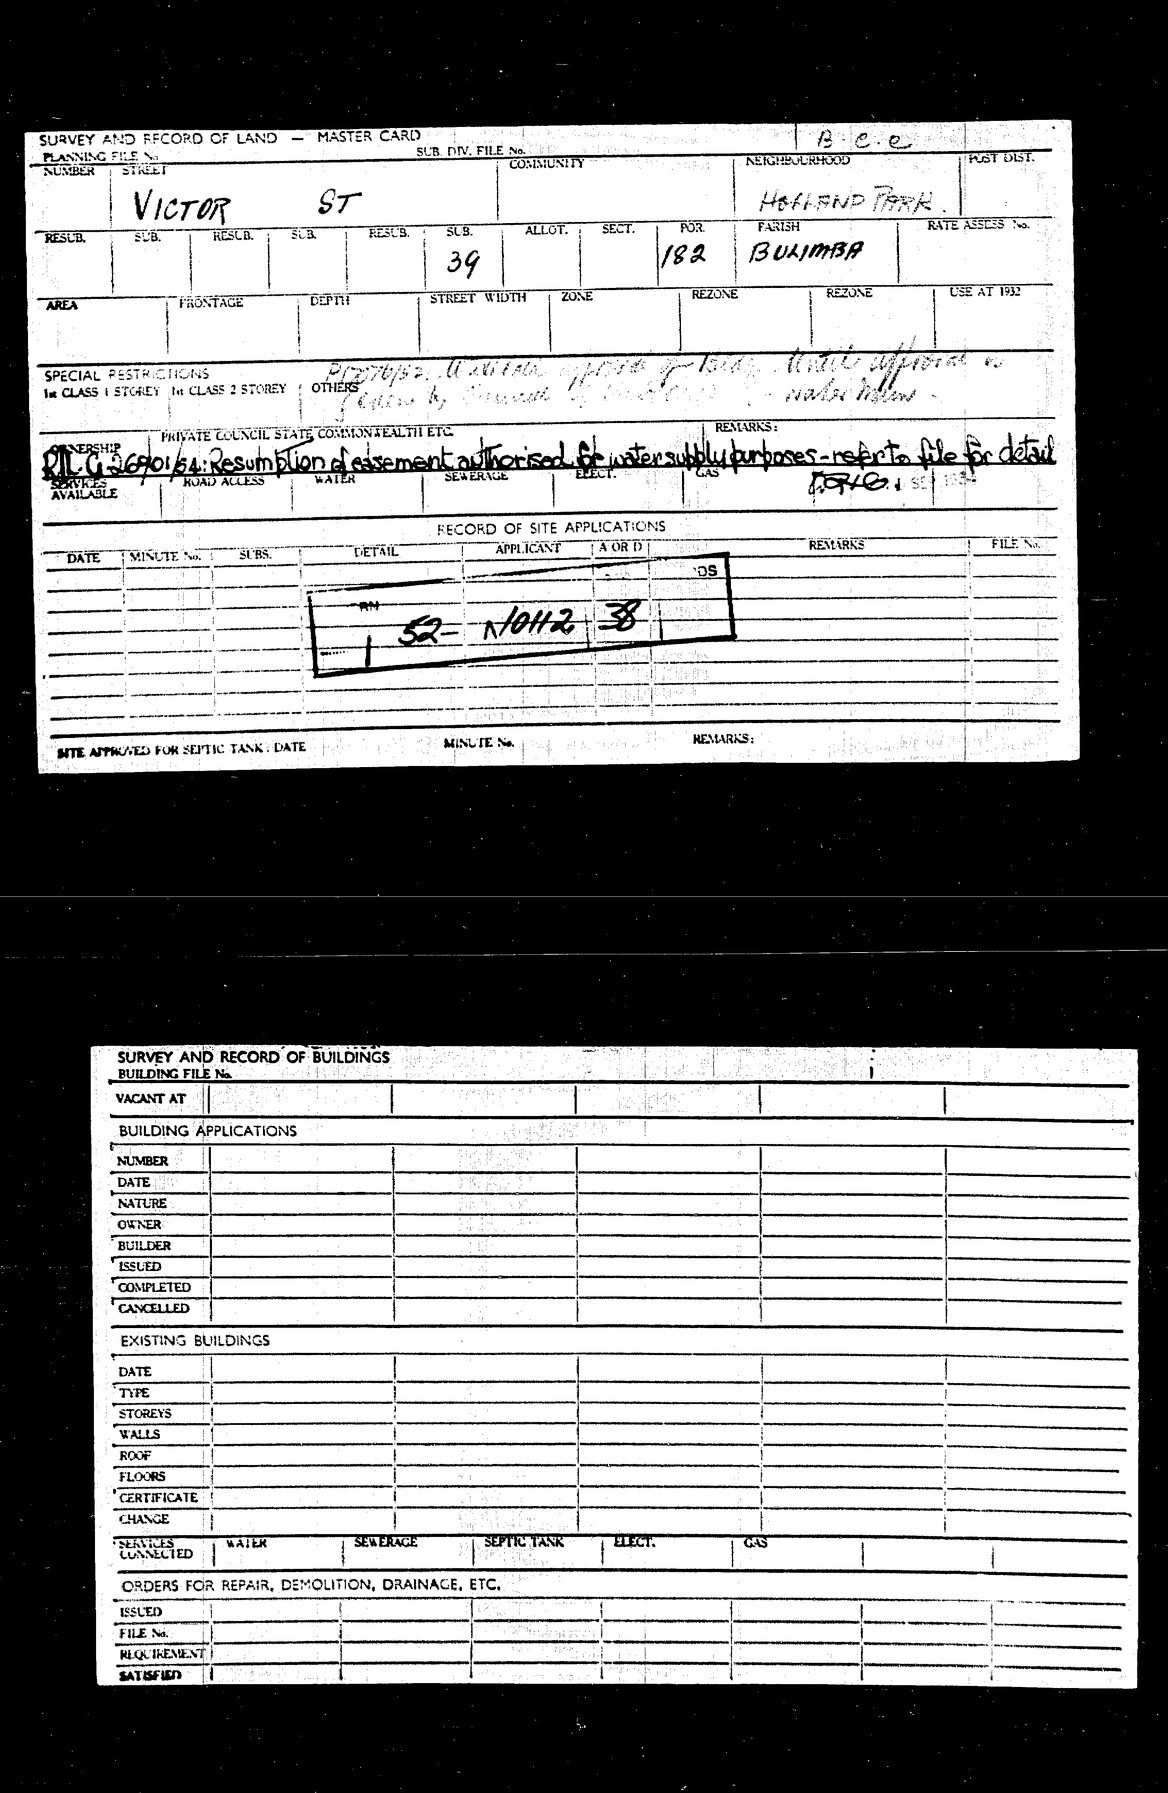 SURVEY AND RECORD OF LAND — MASTER CARD B.C.C
PLANNING FILE No. SUB. DIV. FILE No.
NUMBER STREET COMMUNITY NEIGHBOURHOOD POST DIST.
VICTOR ST HOLLAND PARK.
RESUB. SUB. RESUB. SUB. RESUB. SUB. ALLOT. SECT. POR. PARISH RATE ASSESS No.
39 182 BULIMBA
AREA FRONTAGE DEPTH STREET WIDTH ZONE REZONE REZONE USE AT 1932
SPECIAL RESTRICTIONS of Bldg. Until approval is
1st CLASS 1 STOREY 1st CLASS 2 STOREY OTHERS by Council water mains.
OWNERSHIP PRIVATE COUNCIL STATE COMMONWEALTH ETC. REMARKS:
G.26901/54: Resumption of easement authorised for water supply purposes - refer to file for detail
SERVICES AVAILABLE ROAD ACCESS WATER SEWERAGE ELECT. GAS
RECORD OF SITE APPLICATIONS
DATE MINUTE No. SUBS. DETAIL APPLICANT A OR D REMARKS FILE No.
DS
RN
1 52- N/0112 38
SITE APPROVED FOR SEPTIC TANK: DATE MINUTE No. REMARKS:
SURVEY AND RECORD OF BUILDINGS
BUILDING FILE No.
VACANT AT
BUILDING APPLICATIONS
NUMBER
DATE
NATURE
OWNER
BUILDER
ISSUED
COMPLETED
CANCELLED
EXISTING BUILDINGS
DATE
TYPE
STOREYS
WALLS
ROOF
FLOORS
CERTIFICATE
CHANGE
SERVICES CONNECTED WATER SEWERAGE SEPTIC TANK ELECT. GAS
ORDERS FOR REPAIR, DEMOLITION, DRAINAGE, ETC.
ISSUED
FILE No.
REQUIREMENT
SATISFIED